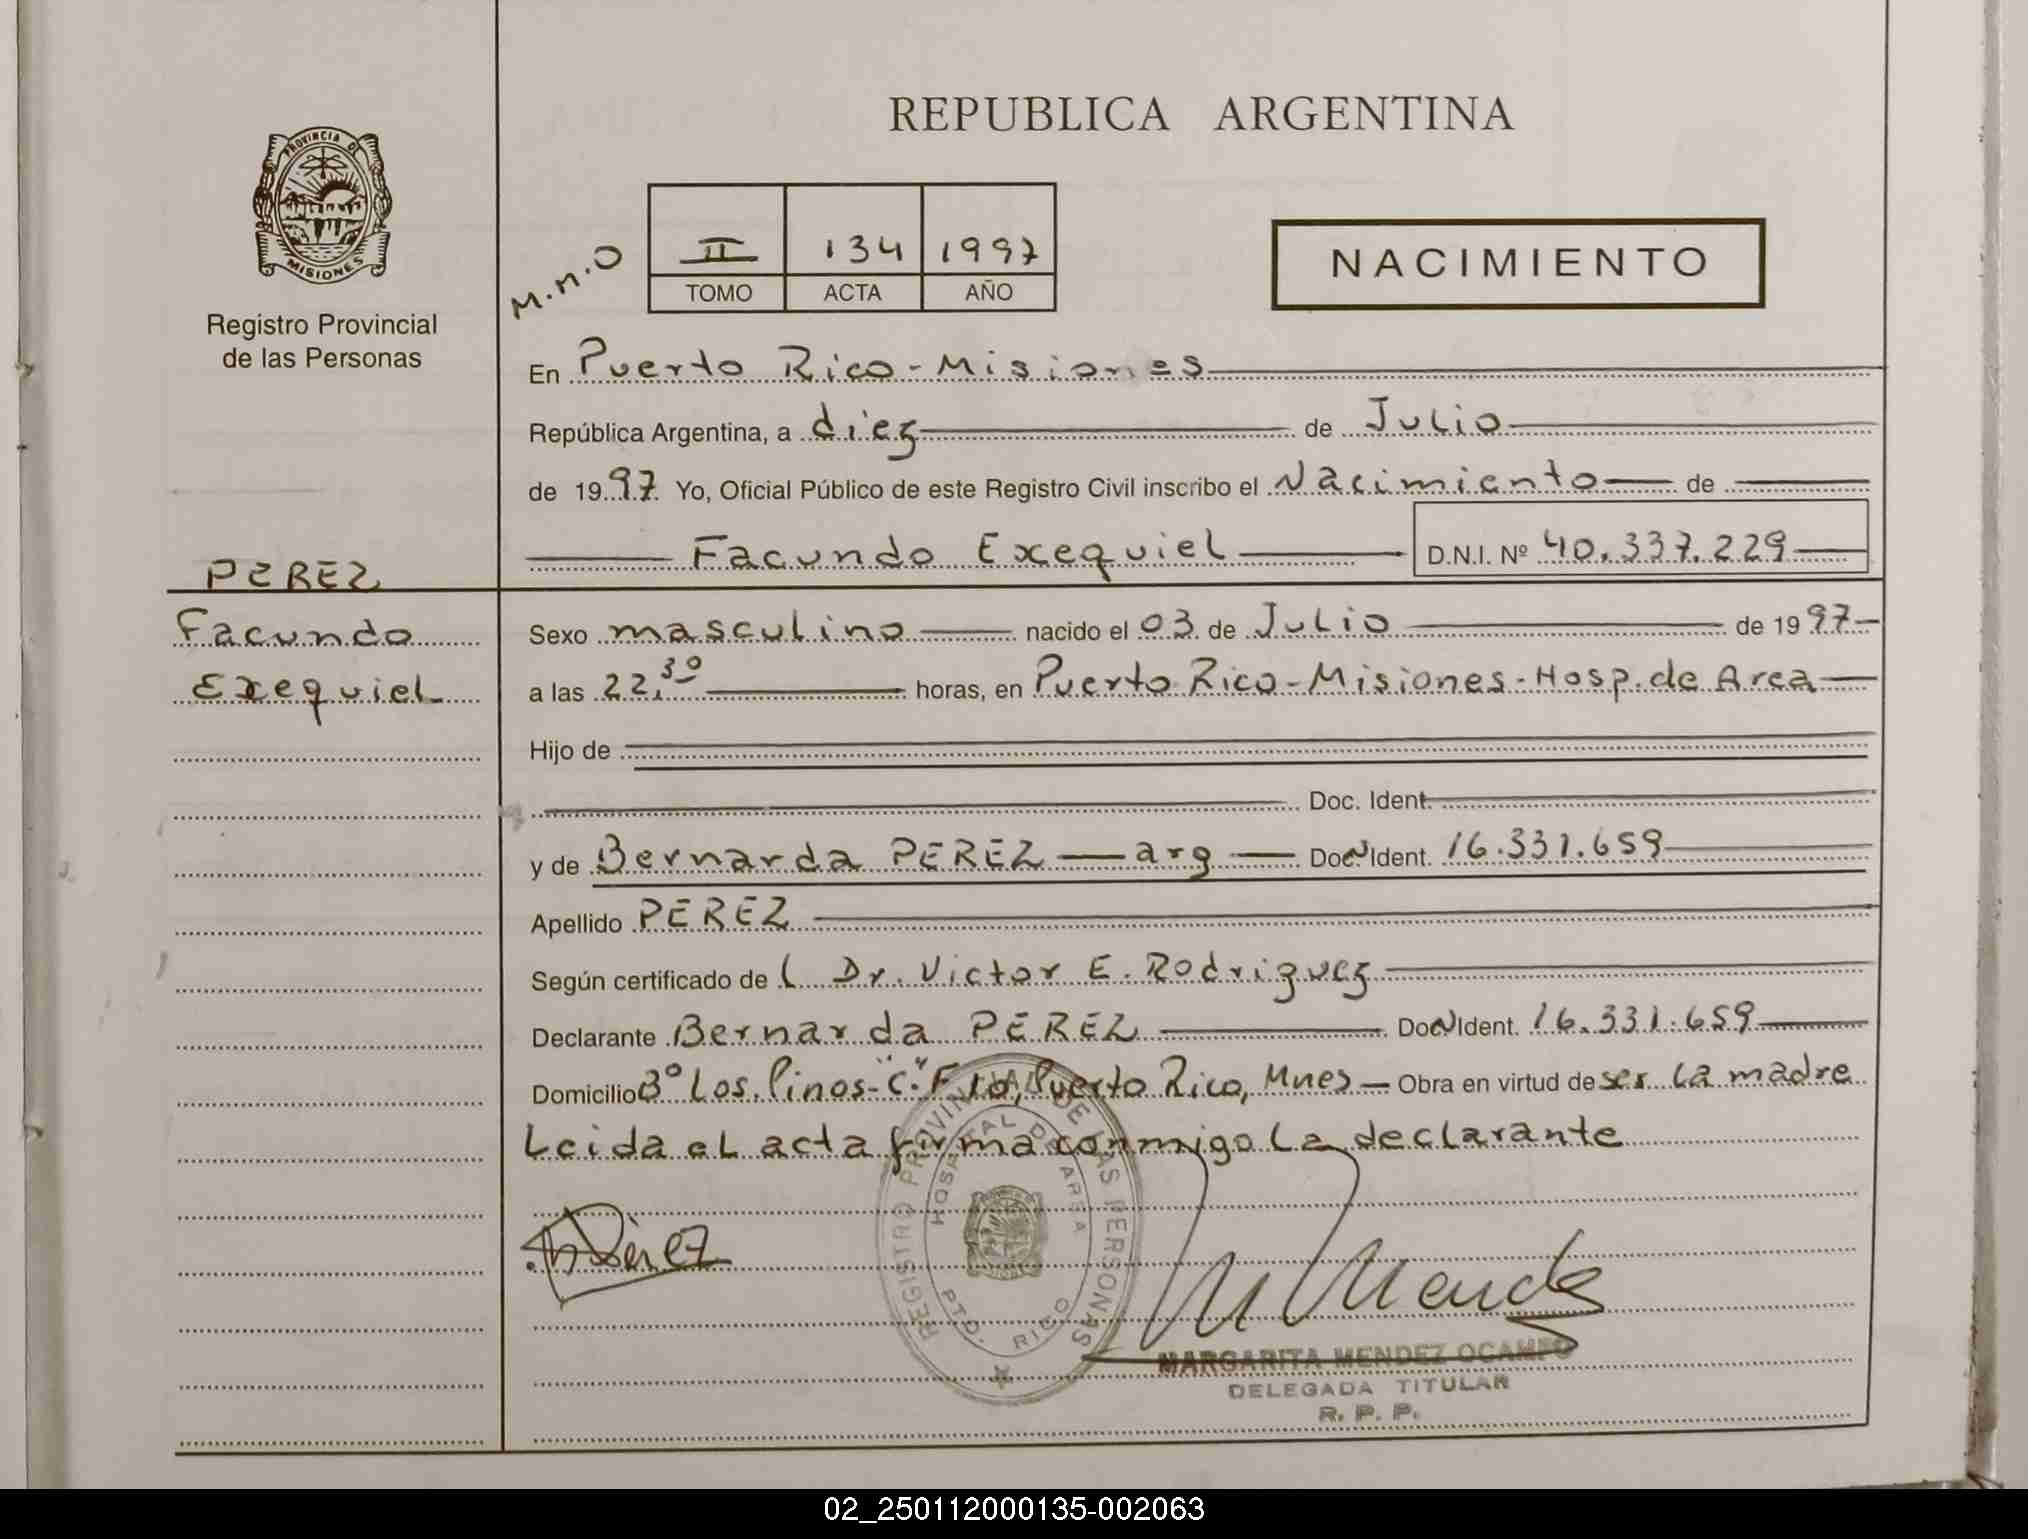 REPUBLICA ARGENTINA
PROVINCIA DE
MISIONES
Registro Provincial
de las Personas
M.N.O
II 134 1997
TOMO ACTA AÑO
NACIMIENTO
En Puerto Rico - Misiones
República Argentina, a diez de Julio
de 1997 Yo, Oficial Público de este Registro Civil inscribo el Nacimiento de
Facundo Exequiel D.N.I. Nº 40.337.229
PEREZ
Facundo
Exequiel
Sexo masculino nacido el 03 de Julio de 1997
a las 22,30 horas, en Puerto Rico - Misiones - Hosp. de Area
Hijo de
Doc. Ident.
y de Bernarda PEREZ — arg — Doc. Ident. 16.331.659
Apellido PEREZ
Según certificado de L Dr. Victor E. Rodriguez
Declarante Bernarda PEREZ Doc. Ident. 16.331.659
Domicilio Bº Los Pinos - "C" F 10, Puerto Rico, Mnes — Obra en virtud de ser la madre
Leida el acta firma conmigo la declarante
Pérez
REGISTRO PROVINCIAL DE LAS PERSONAS
HOSPITAL DE AREA
PTO. RICO
M Mendez
MARGARITA MENDEZ OCAMPO
DELEGADA TITULAR
R. P. P.
02_250112000135-002063